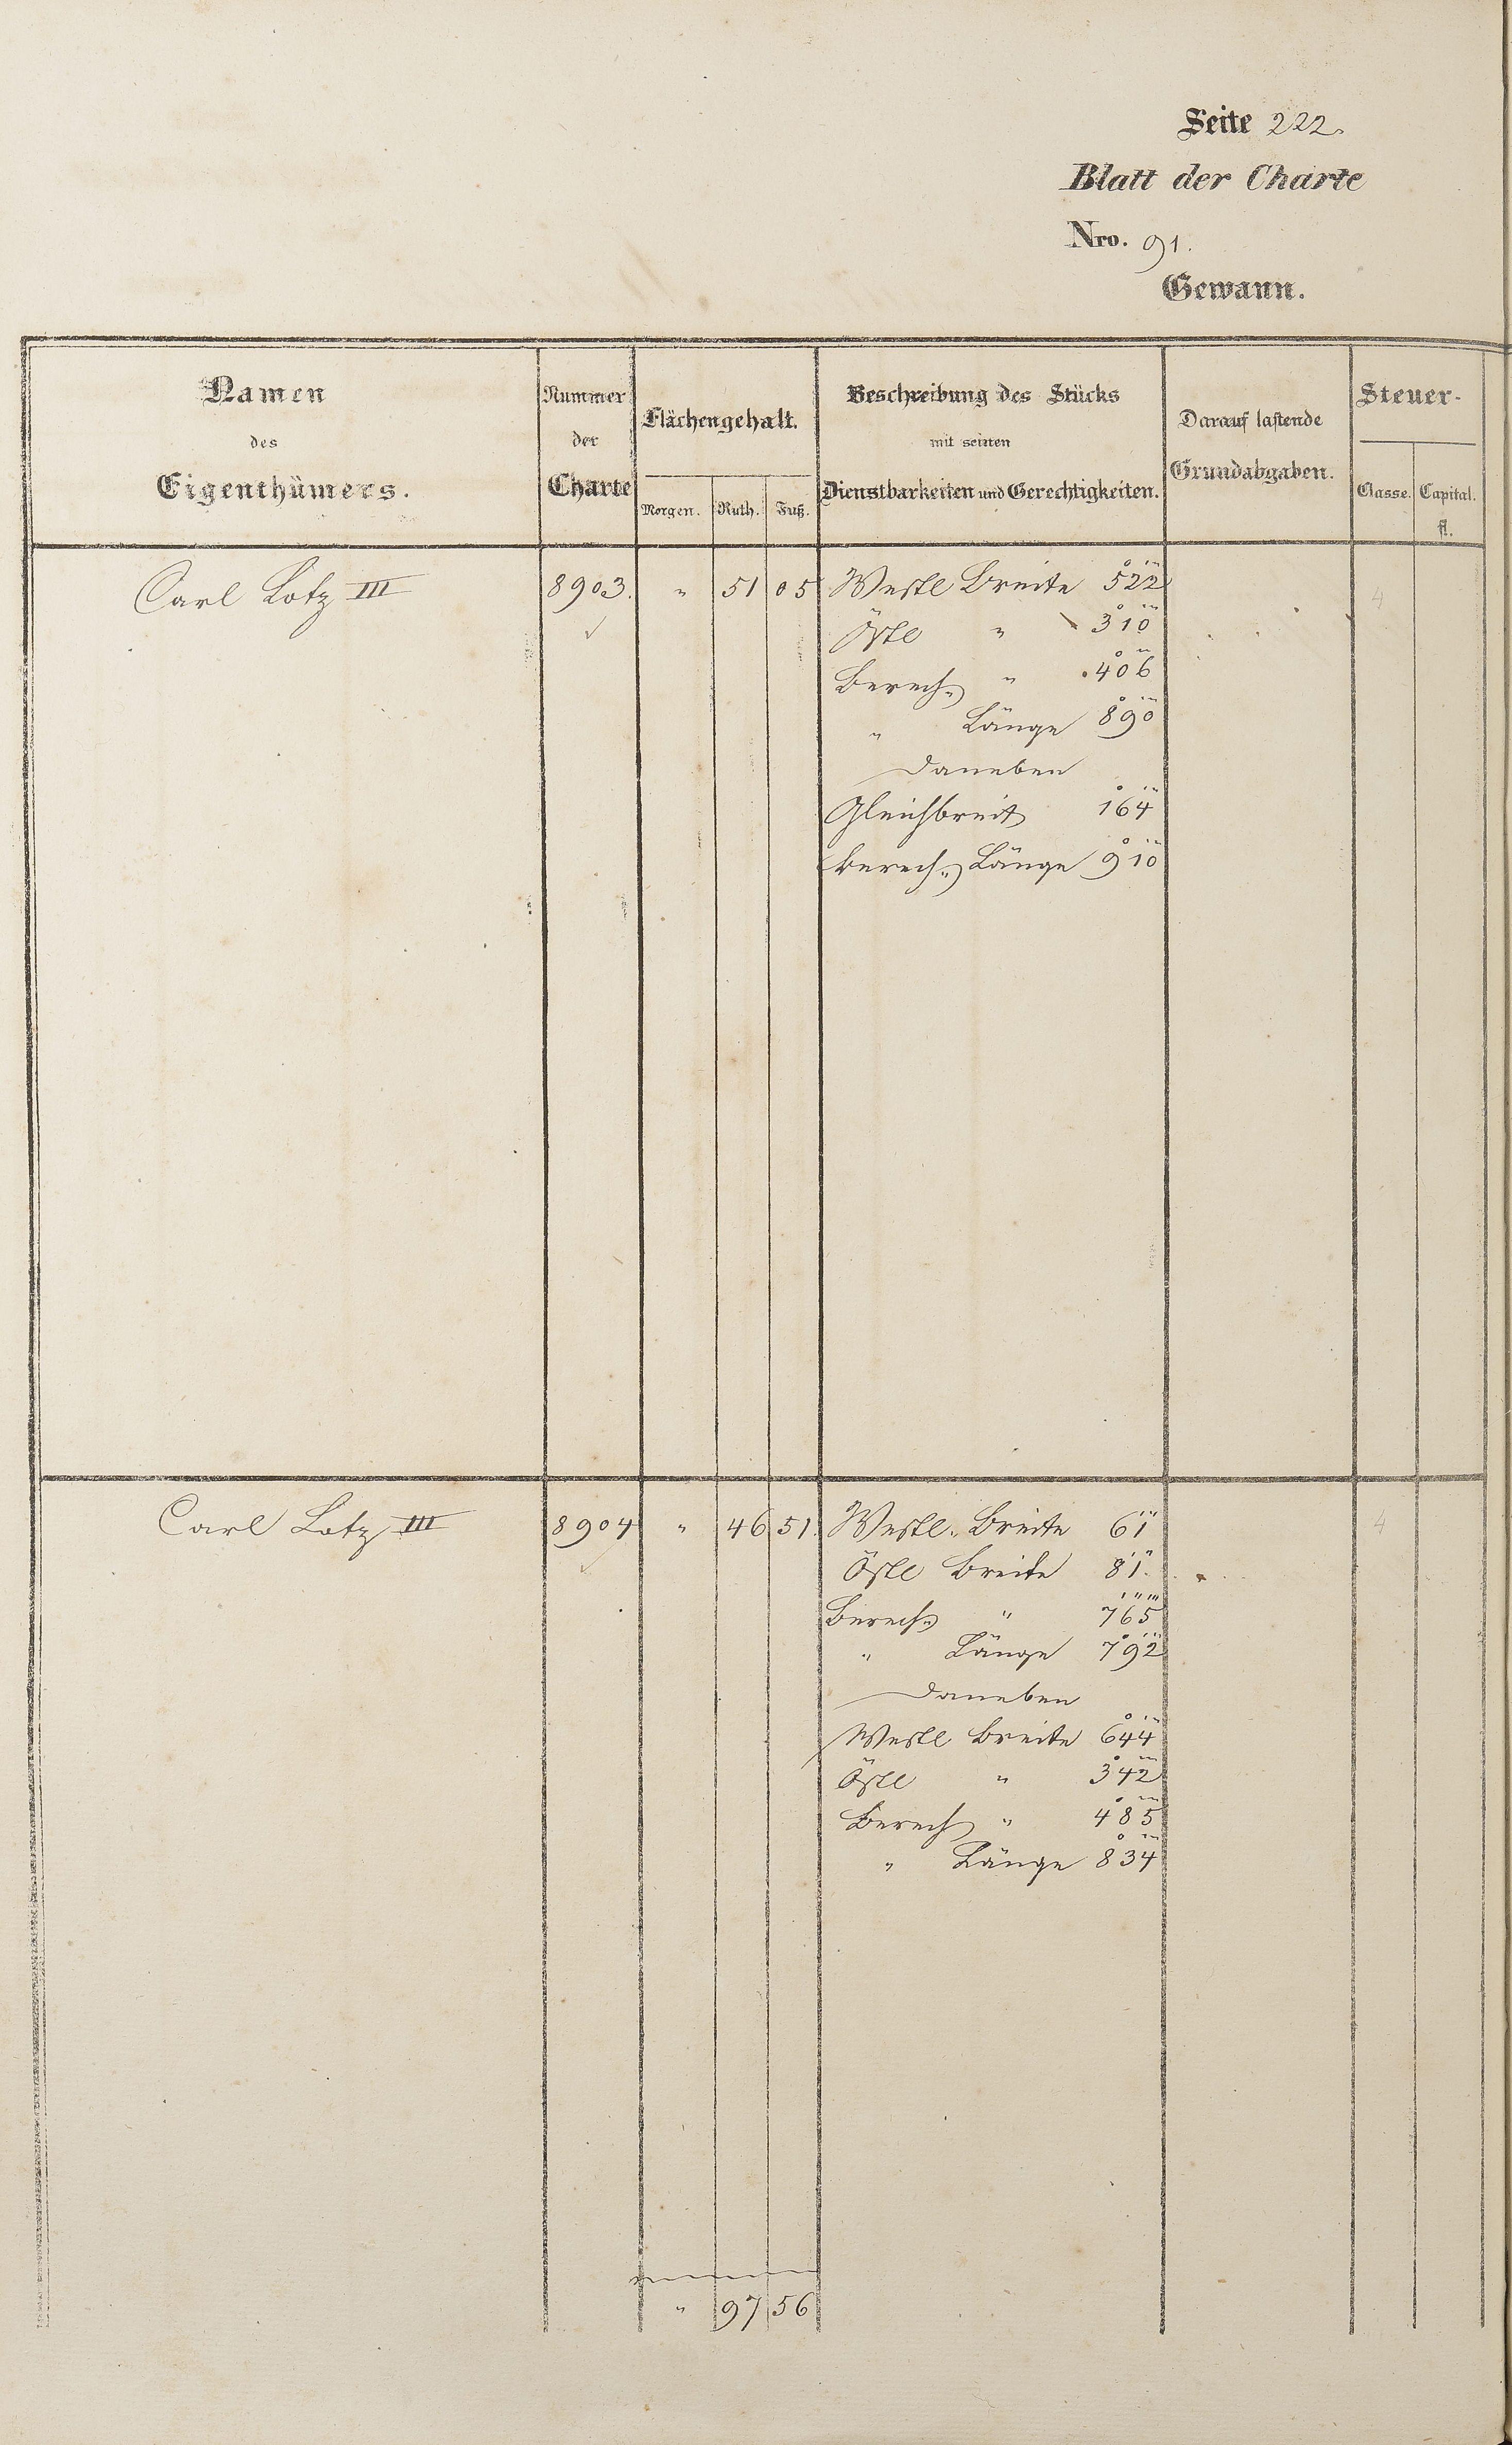 Seite 222.
Blatt der Charte
Nro. 91.
Gewann.
Namen
des
Eigenthümers.
Nummer
der
Charte
Flächengehalt.
Morgen. Ruth. Fuß.
Beschreibung des Stücks
mit seinen
Dienstbarkeiten und Gerechtigkeiten.
Darauf lastende
Grundabgaben.
Steuer-
Classe. Capital.
fl.
Carl Lotz III 8903. " 51 05 Westl Breite 5°2'2" 4
Östl " 3°1'0"
Berech. " 4°0'6"
" Länge 8°9'0"
Daneben
Gleichbreit 1°6'4"
Berech. Länge 9°1'0"
Carl Lotz III 8904 " 46 51. Westl. Breite 6'1" 4
Östl Breite 8'1"
Berech. " 7'6"5'''
" Länge 7°9'2"
Daneben
Westl Breite 6°4'4"
Östl " 3°4'2"
Berech " 4°8'5"
" Länge 8°3'4"
" 97 56